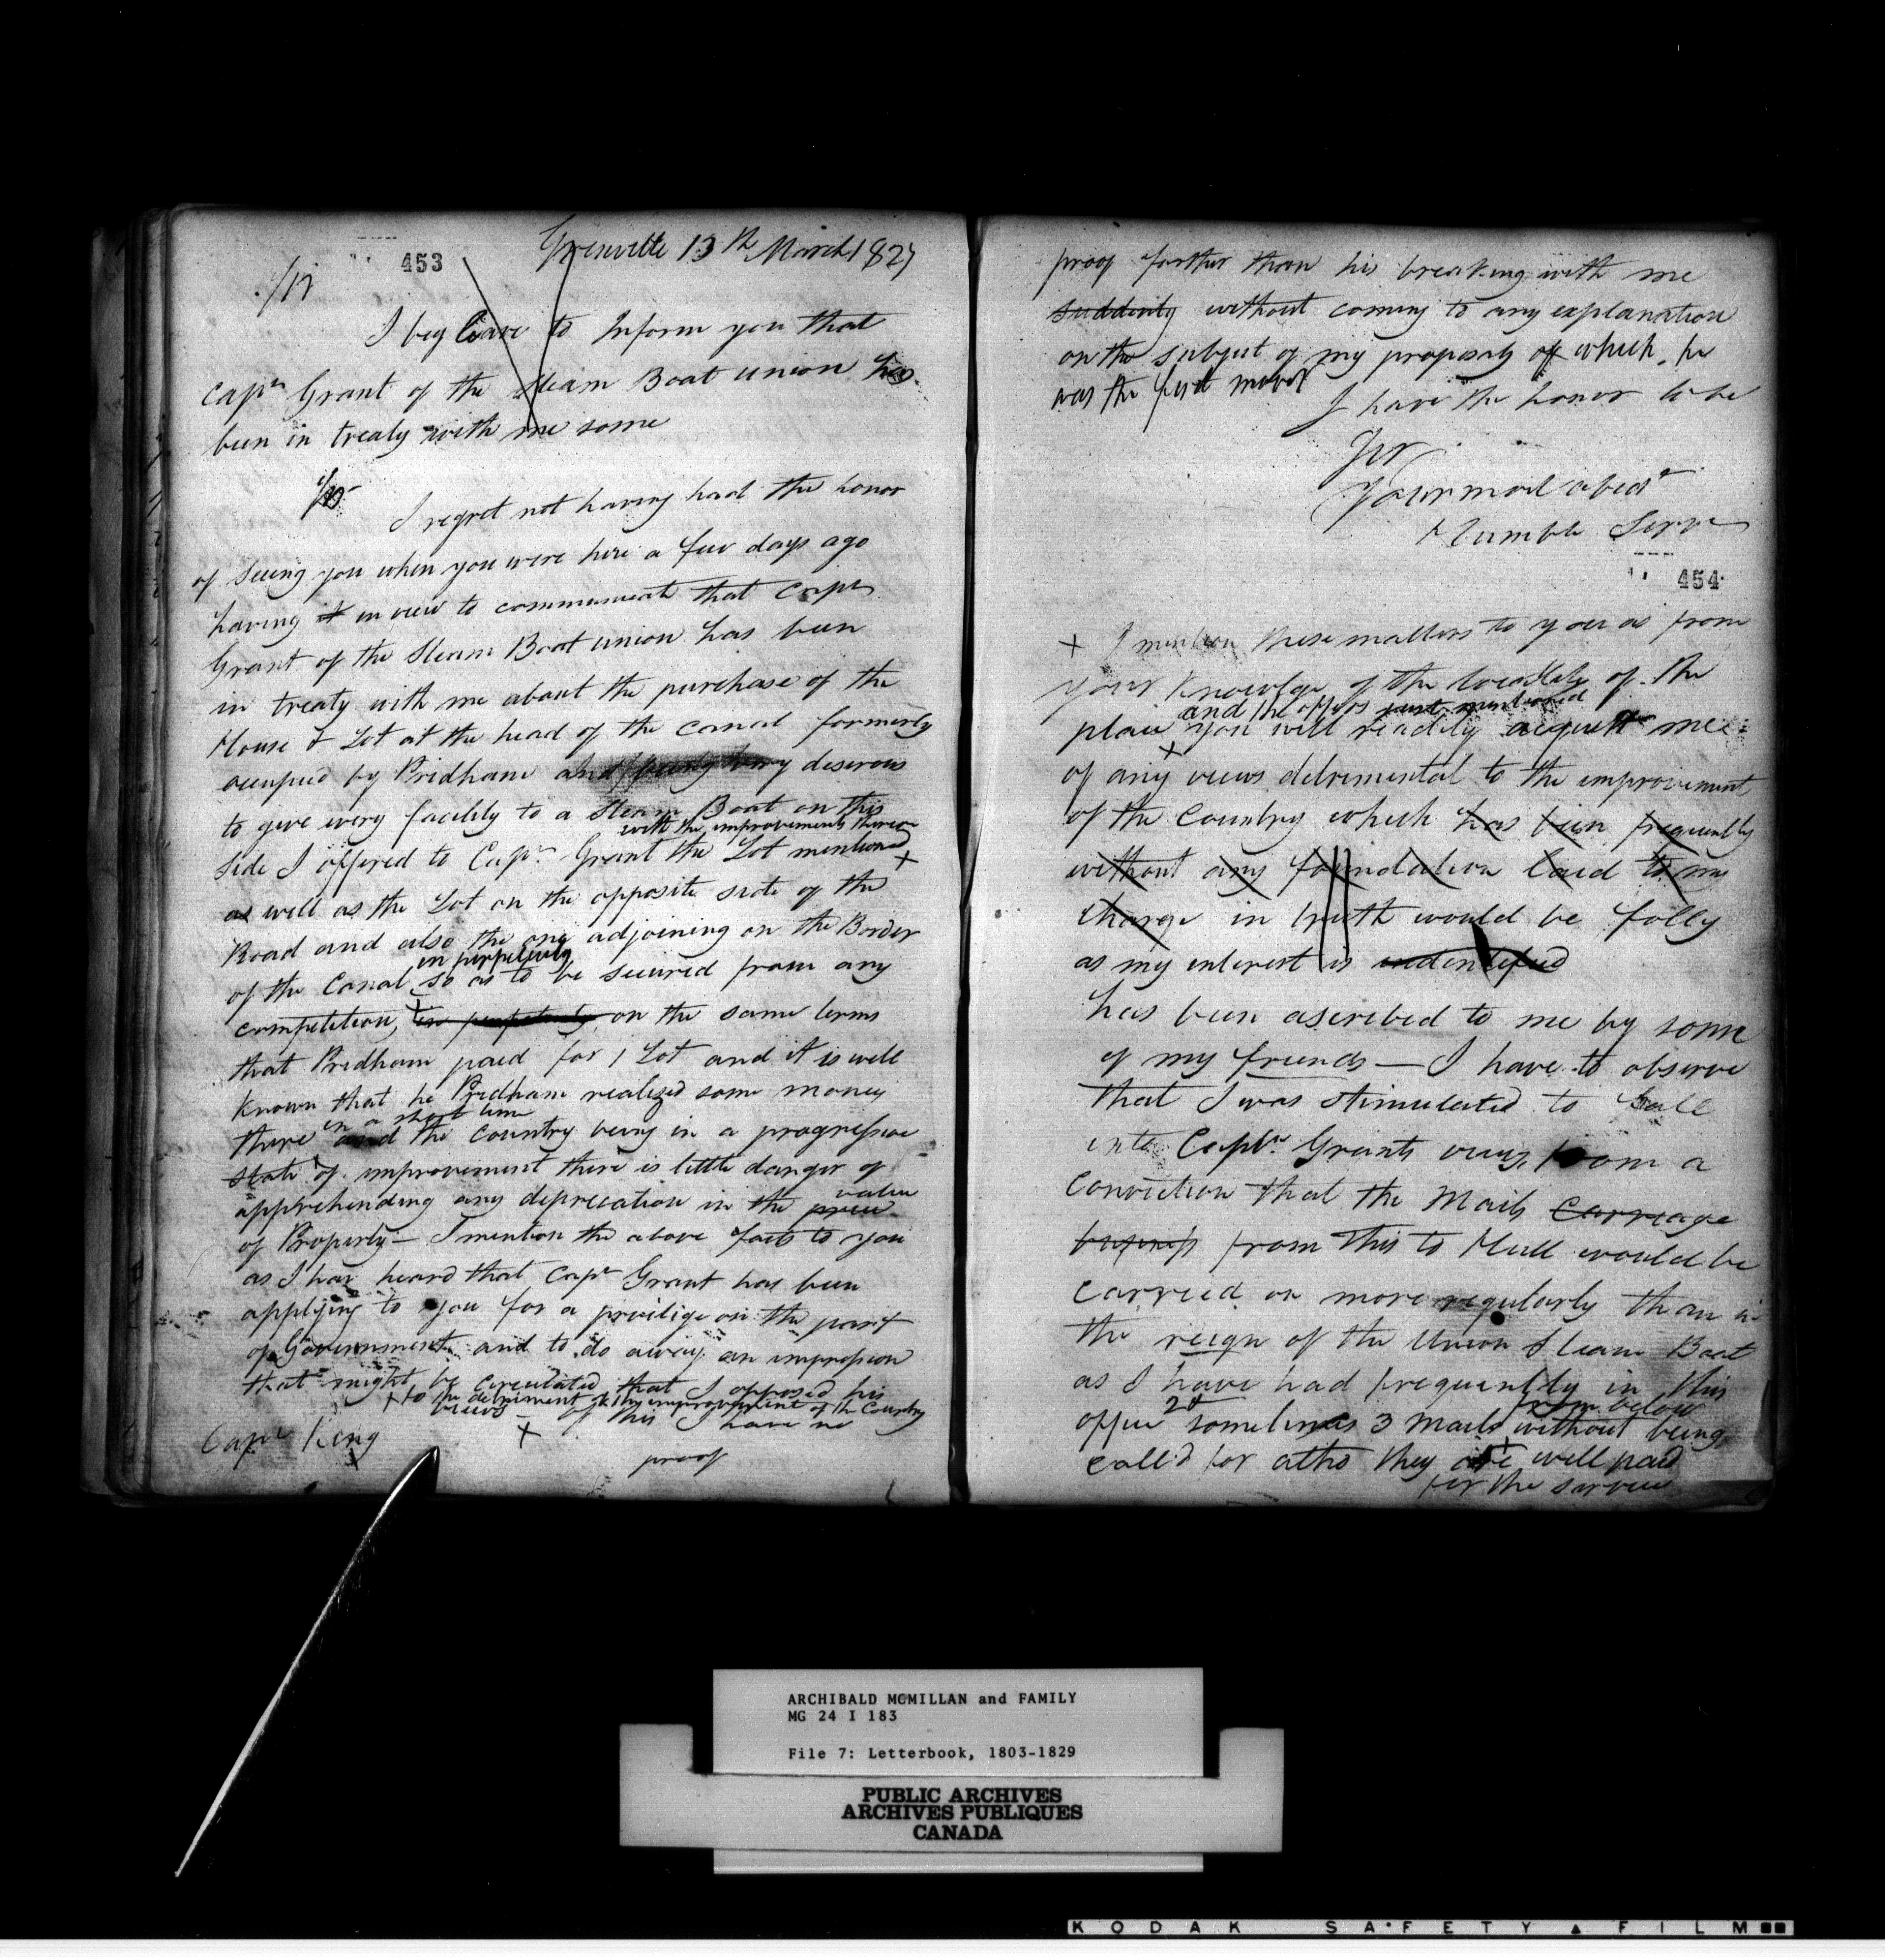 453
Grenville 13th March 1827
Sir
I beg leave to Inform you that
Capn Grant of the Steam Boat Union has
been in treaty with me some
Sir
I regret not having had the honor
of Seeing you when you were here a few days ago
having it in view to communicate that Capn
Grant of the Steam Boat Union has been
in treaty with me about the purchase of the
House & Lot at the head of the Canal formerly
occupied by Pridham and being very desirous
to give every facility to a Steam Boat on this
with the improvements thereon
side I offered to Capn Grant the Lot mentioned +
as well as the Lot on the opposite side of the
Road and also the one adjoining on the Border
in perpetuity
of the Canal so as to be secured from any
competition, in perpetuity on the same terms
that Pridham paid for 1 Lot and it is well
known that he Pridham realized some money
in a short time
there and the country being in a progressive
state of improvement there is little danger of
apprehending any depreciation in the price
value
of Property — I mention the above facts to you
as I have heard that Capn Grant has been
applying to you for a privilige on the part
of Government and to do away an impression
that might be circulated that I opposed his
+ to the detriment of the improvement of the Country
views + of this I have no
Capn King
proof
proof further than his breaking with me
suddenly without coming to any explanation
on the subject of my proposals of which, he
was the first mover
I have the honor to be
Sir
Your most obedt
Humble Serv
454
+ I mention these matters to you as from
your Knowlge of the locality of the
and the offers just mentioned
place + you will readily acquit me
of any views detrimental to the improvement
of the Country which has been frequently
without any foundation laid to my
charge in truth would be folly
as my interest is indentified
has been ascribed to me by some
of my friends — I have to observe
that I was stimulated to fall
into Capn Grants views, from a
Conviction that the Mails Carriage
business from this to Hull would be
carried on more regularly than in
the reign of the Union Steam Boat
as I have had frequently in this
from below
office 2 & sometimes 3 Mails without being
call'd for altho they are well paid
for the service
ARCHIBALD MCMILLAN and FAMILY
MG 24 I 183
File 7: Letterbook, 1803-1829
PUBLIC ARCHIVES
ARCHIVES PUBLIQUES
CANADA
KODAK SAFETY FILM